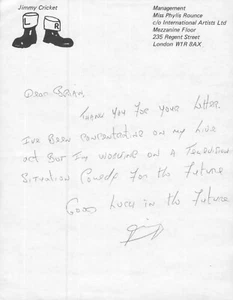 Jimmy Cricket
L R
Management
Miss Phylis Rounce
c/o International Artists Ltd
Mezzanine Floor
235 Regent Street
London W1R 8AX
Dear Brian,
Thank you for your letter
I've been concentrating on my live
act but I'm working on a Television
Situation Comedy for the future
Good luck in the future